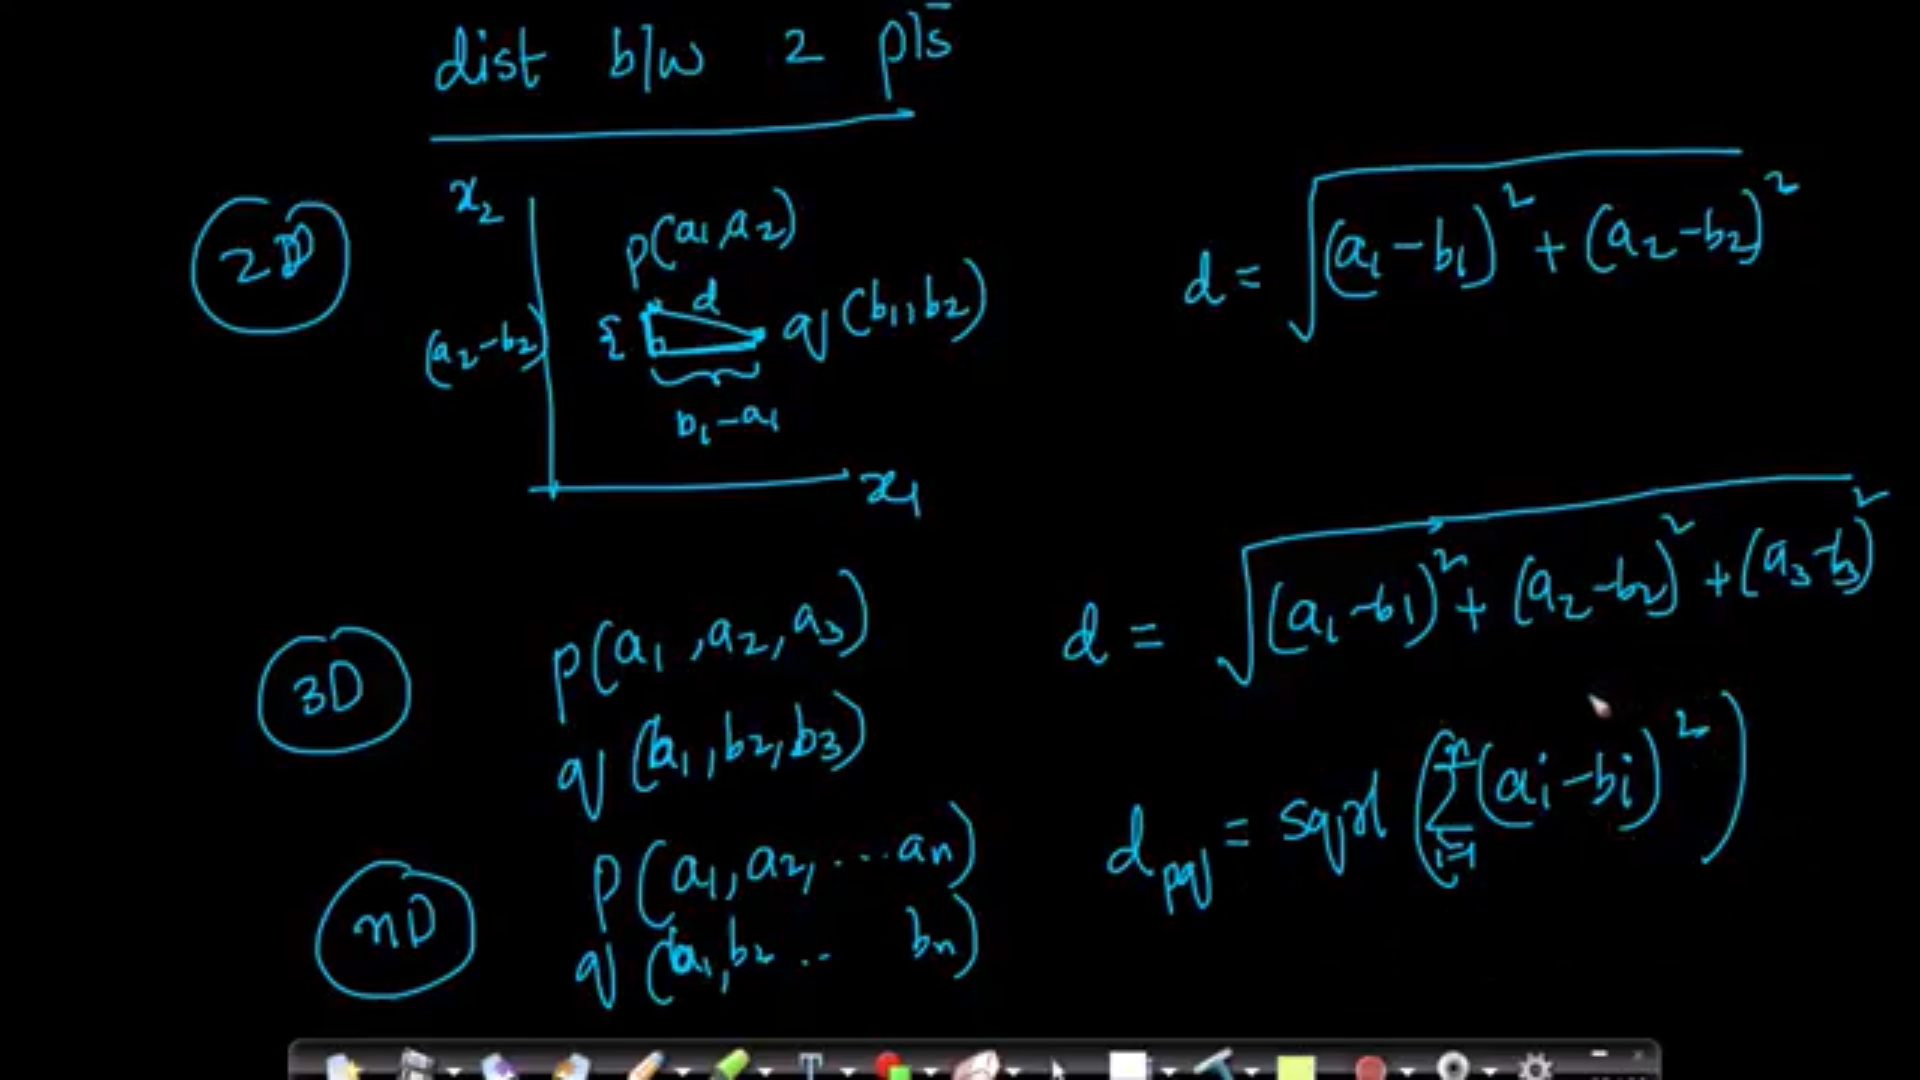 dist b/w 2 pts
2D
x₂
p(a₁,a₂)
d
q(b₁,b₂)
(a₂-b₂)
b₁-a₁
x₁
d = √((a₁-b₁)² + (a₂-b₂)²)
3D
p(a₁,a₂,a₃)
q(b₁,b₂,b₃)
d = √((a₁-b₁)² + (a₂-b₂)² + (a₃-b₃)²)
nD
p(a₁,a₂,...an)
q(b₁,b₂.. bn)
dpq = sqrt(∑ⁿᵢ₌₁(ai-bi)²)